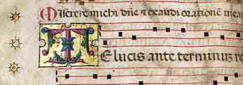 Miserere michi dñe et exaudi orationē meā
Te lucis ante terminum re